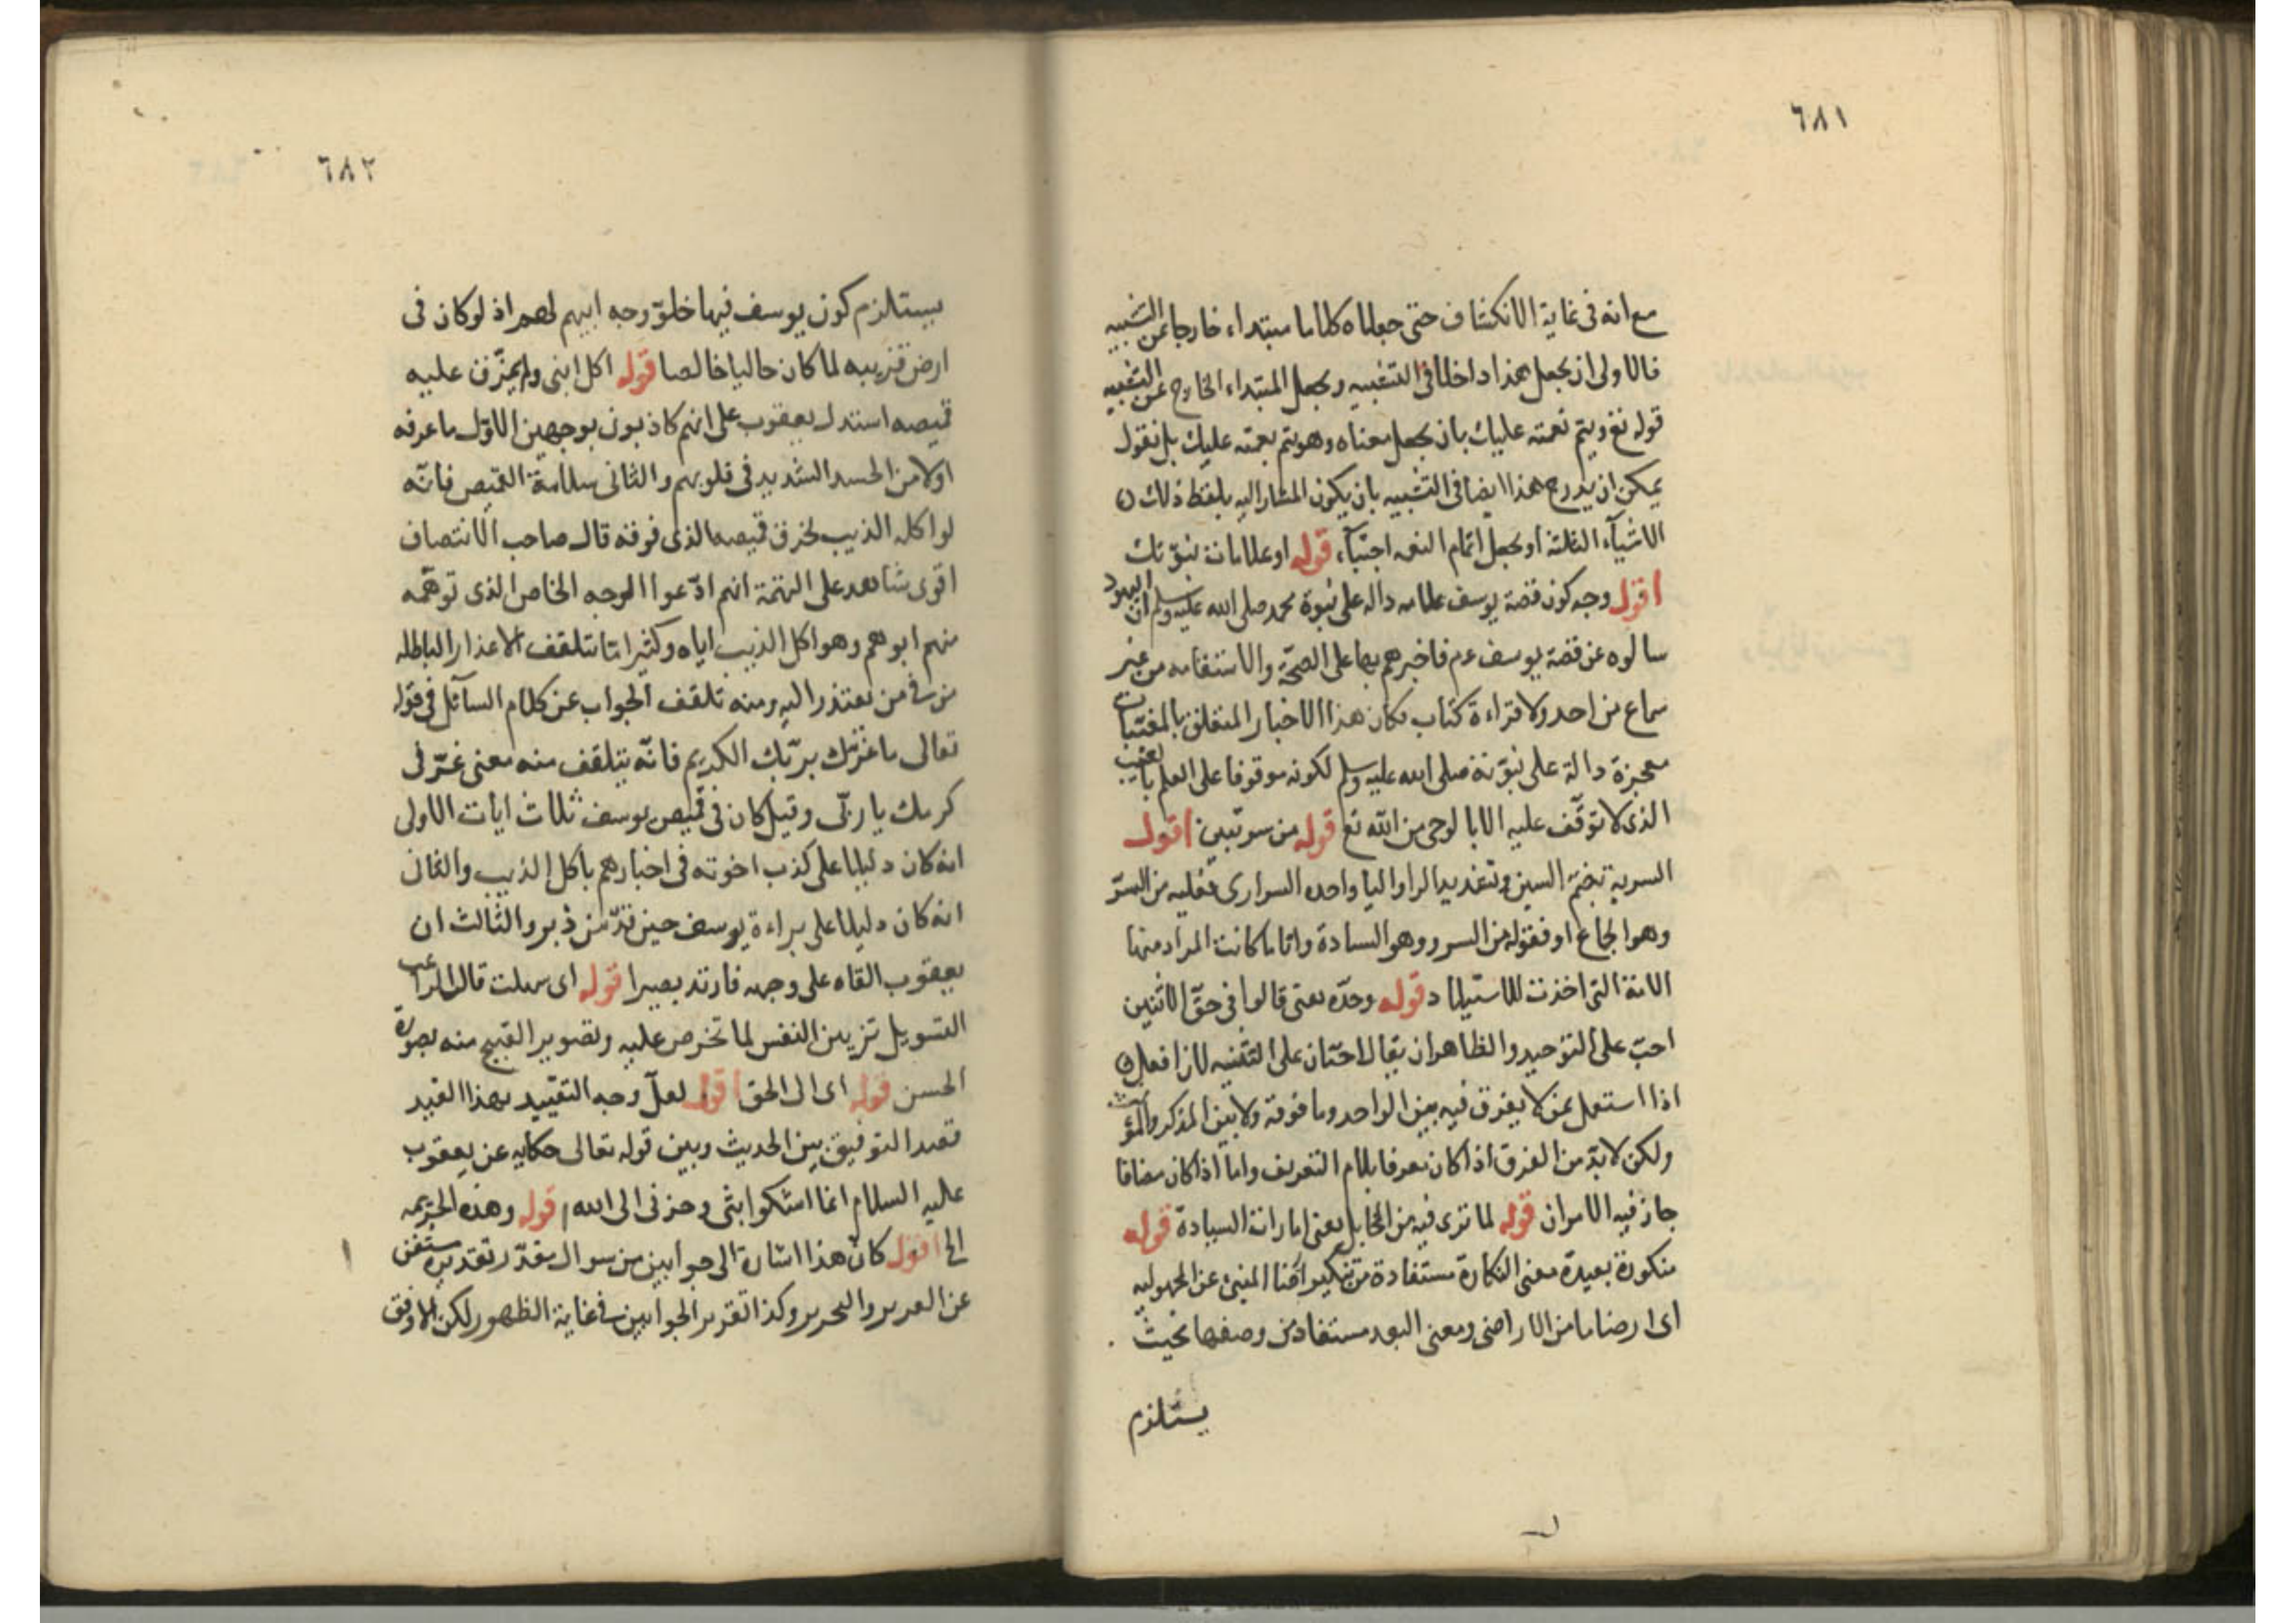 ٦٨١
مع انه فى غاية الانكشاف حتى جعلناه كلاما مبتداء خارجا عن التشبيه
فالاولى ان يجعل هذا داخلا فى التشبيه ويجعل المبتداء الخارج عن التشبيه
قوله تع ويتم نعمته عليك بان يجعل معناه وهو يتم نعمته عليك بل نقول
يمكن ان يدرج هذا ايضا فى التشبيه بان يكون المشار اليه بلفظ ذلك
الاشيآء الثلثة او يجعل اتمام النعمه اجتبآء قوله او علامات نبوّتك
اقول وجه كون قصة يوسف علامه داله على نبوة محمد صلى الله عليه وسلم ان اليهود
سالوه عن قصة يوسف عم فاخبرهم بها على الصحّة والاستقامه من غير
سماع من احد ولا قراءة كتاب فكان هذا الاخبار المتعلق بالمغيّبات
معجزة دالة على نبوّته صلى الله عليه وسلم لكونه موقوفا على العلم بالغيب
الذى لا توقّف عليه الا بالوحى من الله تع قوله من سريتين اقول
السرية بضمّ السين وتشديد الرا واليا واحده السرارى فعليه من السرّ
وهو الجماع او فعوله من السرور وهو السادة وايّاما كانت المراد منها
الامة التى اخذت للاستيلاد قوله وحدّه يعنى قالوا فى حقّ الاثنين
احبّ على التوحيد والظاهر ان يقال احبّان على التثنيه لان افعل
اذا استعمل بمن لا يفرق فيه بين الواحد وما فوقه ولا بين المذكر والمؤنث
ولكن لا بدّ من الفرق اذا كان معرفا بلام التعريف واما اذا كان مضافا
جاز فيه الامران قوله لما ترى فيه من المخايل يعنى امارات السيادة قوله
منكورة بعيدة معنى النكارة مستفادة من تنكير ارضا المنبئ عن المجهوليه
اى ارضا ما من الاراضى ومعنى البعد مستفاد من وصفها بحيث
يستلزم
٦٨٢
يستلزم كون يوسف فيها خلوّ وجه ابيهم لهم اذ لو كان فى
ارض قريبه لما كان خاليا خالصا قوله اكل ابنى ولم يمزّق عليه
قميصه استدل يعقوب على انهم كاذبون بوجهين الاوّل ما عرفه
اولا من الحسد الشديد فى قلوبهم والثانى سلامة القميص فانّه
لو اكله الذيب لخرق قميصه الذى فوقه قال صاحب الانتصاف
اقوى شاهد على التهمة انهم ادّعوا الوجه الخاص الذى توهّمه
منهم ابوهم وهو اكل الذيب اياه وكثيرا ما تتلقف الاعذار الباطله
من فى من يعتذر اليه ومنه تلقف الجواب عن كلام السآئل فى قوله
تعالى ما غرّك بربّك الكريم فانّه يتلقف منه معنى غرّنى
كرمك يا ربّى وقيل كان فى قميص يوسف ثلاث ايات الاولى
انه كان دليلا على كذب اخوته فى اخبارهم باكل الذيب والثانى
انه كان دليلا على براءة يوسف حين قدّ من دبر والثالث ان
يعقوب القاه على وجهه فارتد بصيرا قوله اى سهلت قال الراغب
التسويل تزيين النفس لما تحرص عليه وتصوير القبيح منه بصورة
الحسن قوله اى الى الحق اقول لعلّ وجه التقييد بهذا القيد
قصد التوفيق بين الحديث وبين قوله تعالى حكايه عن يعقوب
عليه السلام انما اشكوا بثى وحزنى الى الله قوله وهذه الجريمه
الخ اقول كانّ هذا اشارة الى جوابين من سوال مقدّر تقديره مستغن
عن التقرير والتحرير وكذا تقرير الجوابين فى غاية الظهور لكن الاوفق